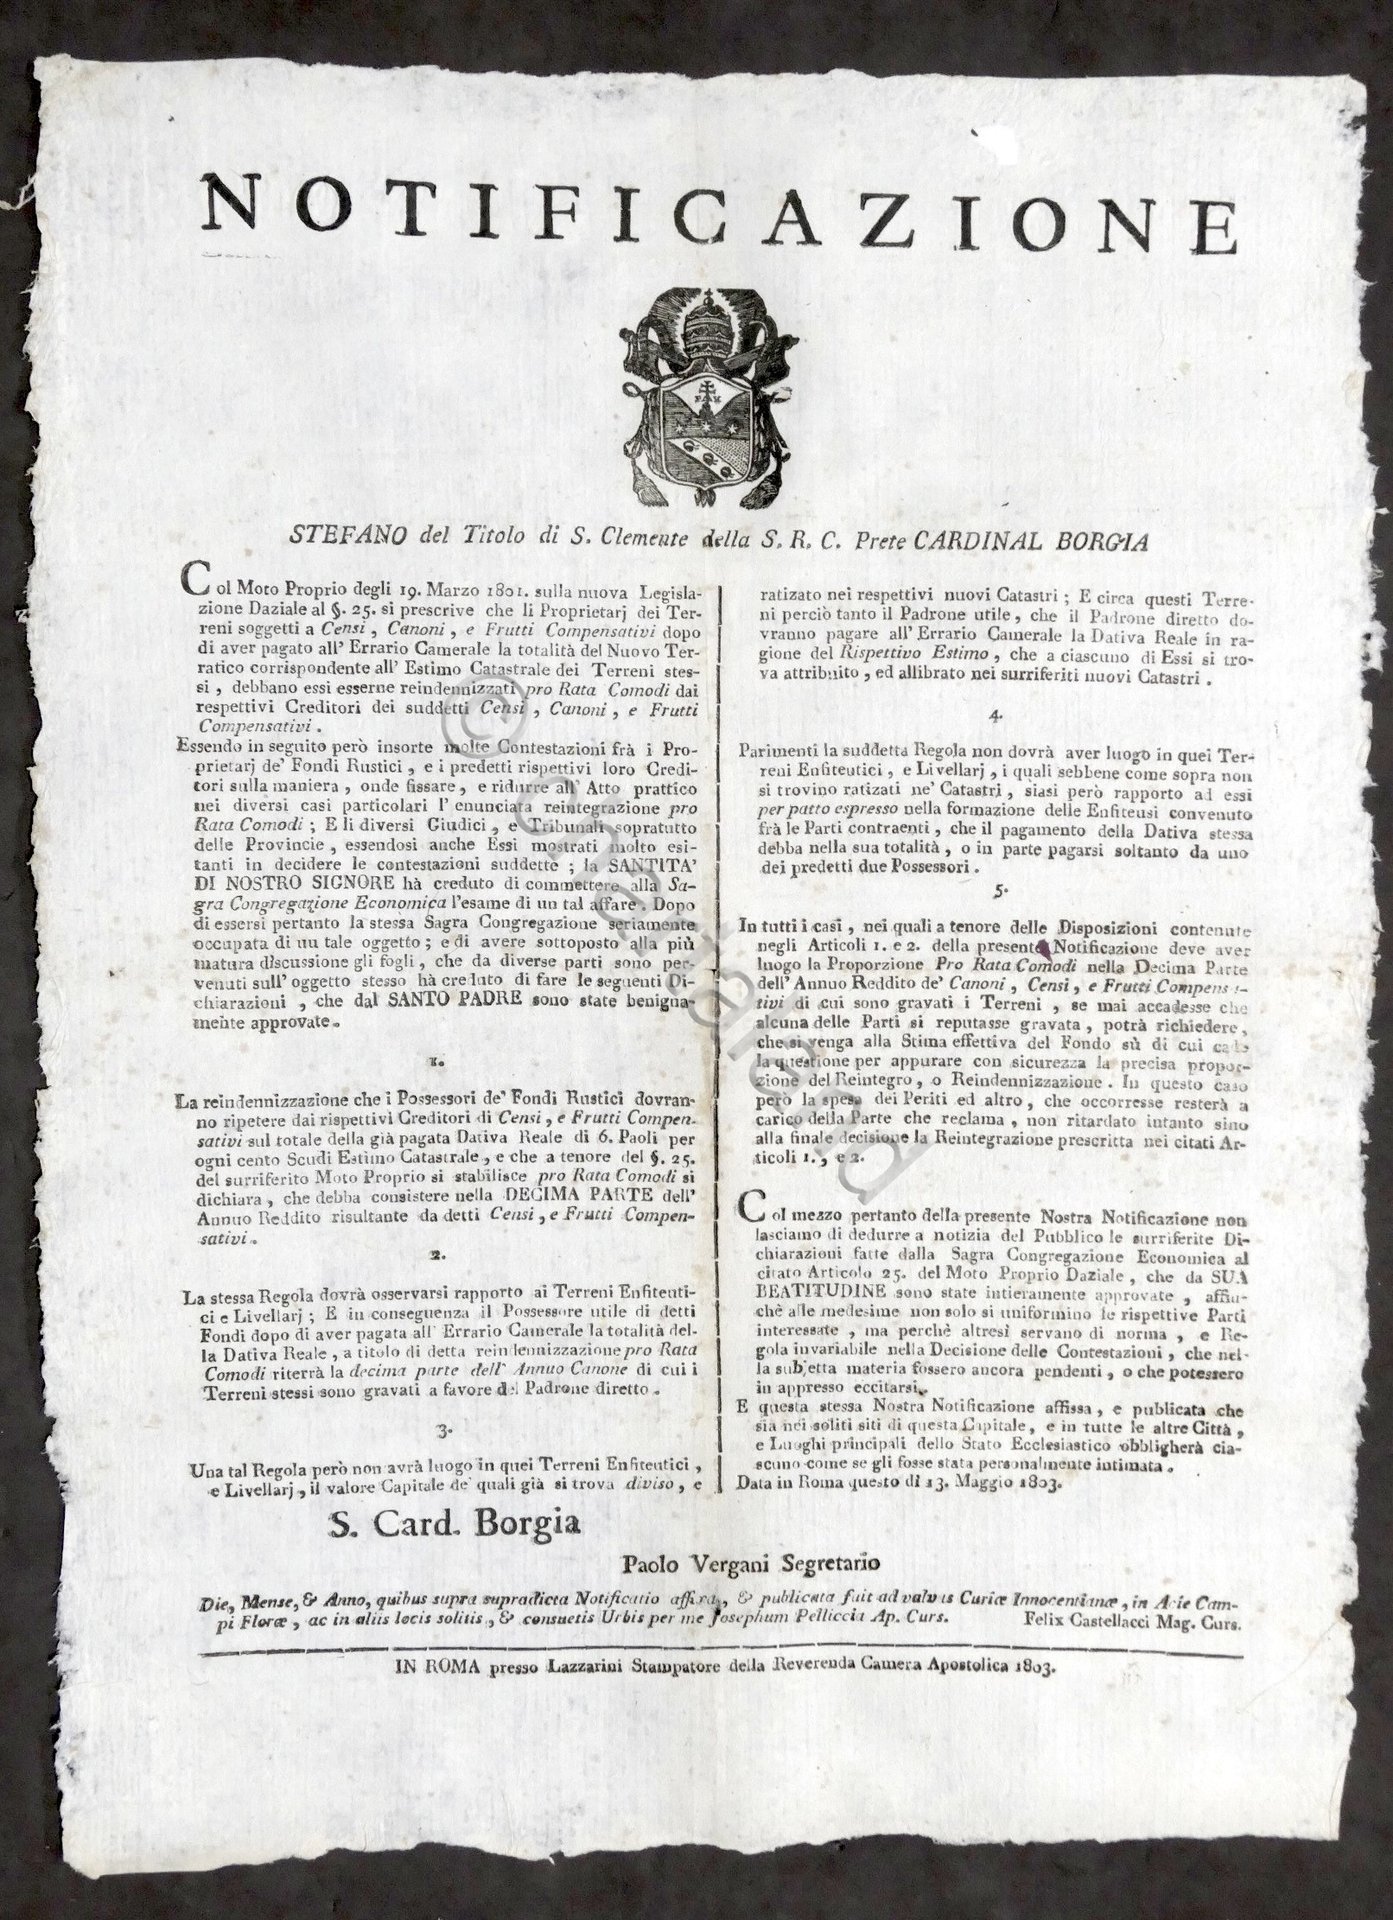 NOTIFICAZIONE
PAX
STEFANO del Titolo di S. Clemente della S. R. C. Prete CARDINAL BORGIA
Col Moto Proprio degli 19. Marzo 1801. sulla nuova Legisla-
zione Daziale al §. 25. si prescrive che li Proprietarj dei Ter-
reni soggetti a Censi, Canoni, e Frutti Compensativi dopo
di aver pagato all' Errario Camerale la totalità del Nuovo Ter-
ratico corrispondente all' Estimo Catastrale dei Terreni stes-
si, debbano essi esserne reindennizzati pro Rata Comodi dai
respettivi Creditori dei suddetti Censi, Canoni, e Frutti
Compensativi.
Essendo in seguito però insorte molte Contestazioni frà i Pro-
prietarj de' Fondi Rustici, e i predetti rispettivi loro Credi-
tori sulla maniera, onde fissare, e ridurre all' Atto prattico
nei diversi casi particolari l' enunciata reintegrazione pro
Rata Comodi; E li diversi Giudici, e Tribunali sopratutto
delle Provincie, essendosi anche Essi mostrati molto esi-
tanti in decidere le contestazioni suddette; la SANTITA'
DI NOSTRO SIGNORE hà creduto di commettere alla Sa-
gra Congregazione Economica l'esame di un tal affare. Dopo
di essersi pertanto la stessa Sagra Congregazione seriamente
occupata di un tale oggetto; e di avere sottoposto alla più
matura discussione gli fogli, che da diverse parti sono per-
venuti sull' oggetto stesso hà creduto di fare le seguenti Di-
chiarazioni, che dal SANTO PADRE sono state benigna-
mente approvate.
1.
La reindennizzazione che i Possessori de' Fondi Rustici dovran-
no ripetere dai rispettivi Creditori di Censi, e Frutti Compen-
sativi sul totale della già pagata Dativa Reale di 6. Paoli per
ogni cento Scudi Estimo Catastrale, e che a tenore del §. 25.
del surriferito Moto Proprio si stabilisce pro Rata Comodi si
dichiara, che debba consistere nella DECIMA PARTE dell'
Annuo Reddito risultante da detti Censi, e Frutti Compen-
sativi.
2.
La stessa Regola dovrà osservarsi rapporto ai Terreni Enfiteuti-
ci e Livellarj; E in conseguenza il Possessore utile di detti
Fondi dopo di aver pagata all' Errario Camerale la totalità del-
la Dativa Reale, a titolo di detta reindennizzazione pro Rata
Comodi riterrà la decima parte dell' Annuo Canone di cui i
Terreni stessi sono gravati a favore del Padrone diretto.
3.
Una tal Regola però non avrà luogo in quei Terreni Enfiteutici,
e Livellarj, il valore Capitale de' quali già si trova diviso, e
ratizato nei respettivi nuovi Catastri; E circa questi Terre-
ni perciò tanto il Padrone utile, che il Padrone diretto do-
vranno pagare all' Errario Camerale la Dativa Reale in ra-
gione del Rispettivo Estimo, che a ciascuno di Essi si tro-
va attribuito, ed allibrato nei surriferiti nuovi Catastri.
4.
Parimenti la suddetta Regola non dovrà aver luogo in quei Ter-
reni Enfiteutici, e Livellarj, i quali sebbene come sopra non
si trovino ratizati ne' Catastri, siasi però rapporto ad essi
per patto espresso nella formazione delle Enfiteusi convenuto
frà le Parti contraenti, che il pagamento della Dativa stessa
debba nella sua totalità, o in parte pagarsi soltanto da uno
dei predetti due Possessori.
5.
In tutti i casi, nei quali a tenore delle Disposizioni contenute
negli Articoli 1. e 2. della presente Notificazione deve aver
luogo la Proporzione Pro Rata Comodi nella Decima Parte
dell' Annuo Reddito de' Canoni, Censi, e Frutti Compensa-
tivi di cui sono gravati i Terreni, se mai accadesse che
alcuna delle Parti si reputasse gravata, potrà richiedere,
che si venga alla Stima effettiva del Fondo sù di cui cade
la questione per appurare con sicurezza la precisa propor-
zione del Reintegro, o Reindennizzazione. In questo caso
però la spesa dei Periti ed altro, che occorresse resterà a
carico della Parte che reclama, non ritardato intanto sino
alla finale decisione la Reintegrazione prescritta nei citati Ar-
ticoli 1., e 2.
Col mezzo pertanto della presente Nostra Notificazione non
lasciamo di dedurre a notizia del Pubblico le surriferite Di-
chiarazioni fatte dalla Sagra Congregazione Economica al
citato Articolo 25. del Moto Proprio Daziale, che da SUA
BEATITUDINE sono state intieramente approvate, affin-
chè alle medesime non solo si uniformino le rispettive Parti
interessate, ma perchè altresì servano di norma, e Re-
gola invariabile nella Decisione delle Contestazioni, che nel-
la subjetta materia fossero ancora pendenti, o che potessero
in appresso eccitarsi.
E questa stessa Nostra Notificazione affissa, e publicata che
sia nei soliti siti di questa Capitale, e in tutte le altre Città,
e Luoghi principali dello Stato Ecclesiastico obbligherà cia-
scuno come se gli fosse stata personalmente intimata.
Data in Roma questo dì 13. Maggio 1803.
S. Card. Borgia
Paolo Vergani Segretario
Die, Mense, & Anno, quibus supra supradicta Notificatio affixa, & publicata fuit ad valvas Curiæ Innocentianæ, in Acie Cam-
pi Floræ, ac in aliis locis solitis, & consuetis Urbis per me Josephum Pelliccia Ap. Curs. Felix Castellacci Mag. Curs.
IN ROMA presso Lazzarini Stampatore della Reverenda Camera Apostolica 1803.